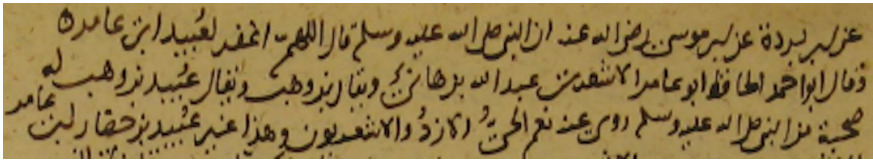 عن ابى بردة عن ابى موسى رضى الله عنه ان النبى صلى الله عليه وسلم قال اللهم اغفر لعبيد ابى عامر
وقال ابو احمد الحافظ ابو عامر الاشعرى عبد الله بن هانئ ويقال بن وهب ويقال عبيد بن وهب له
صحبة من النبى صلى الله عليه وسلم روى عنه نعم الحىُّ الازدُ والاشعريون وهذا غير عُبيد بن حضار ابى عامر